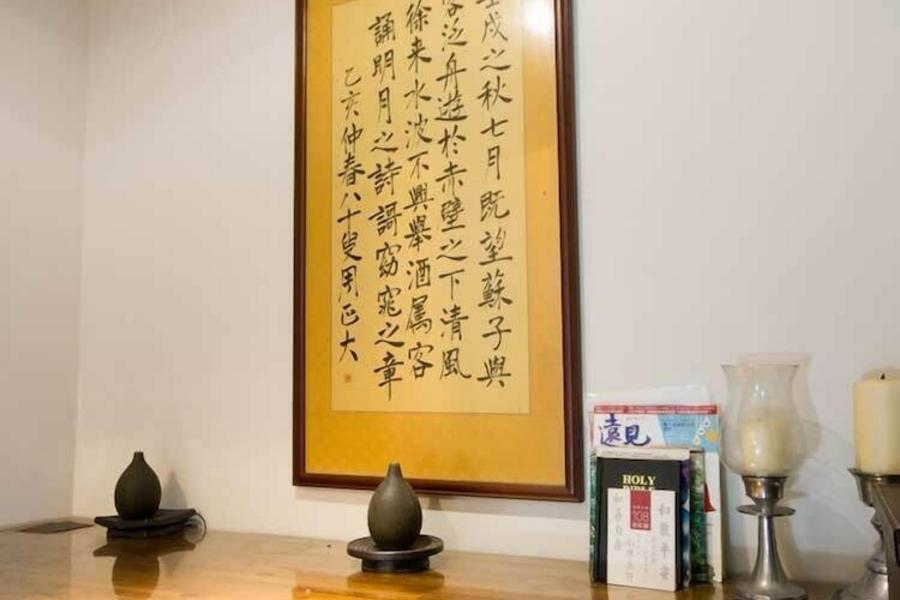 壬戌之秋七月既望蘇子與
客泛舟遊於赤壁之下清風
徐来水波不興舉酒属客
誦明月之詩謌窈窕之章
乙亥仲春八十叟周正大
遠見
HOLY
BIBLE
108
和敬平安
自在